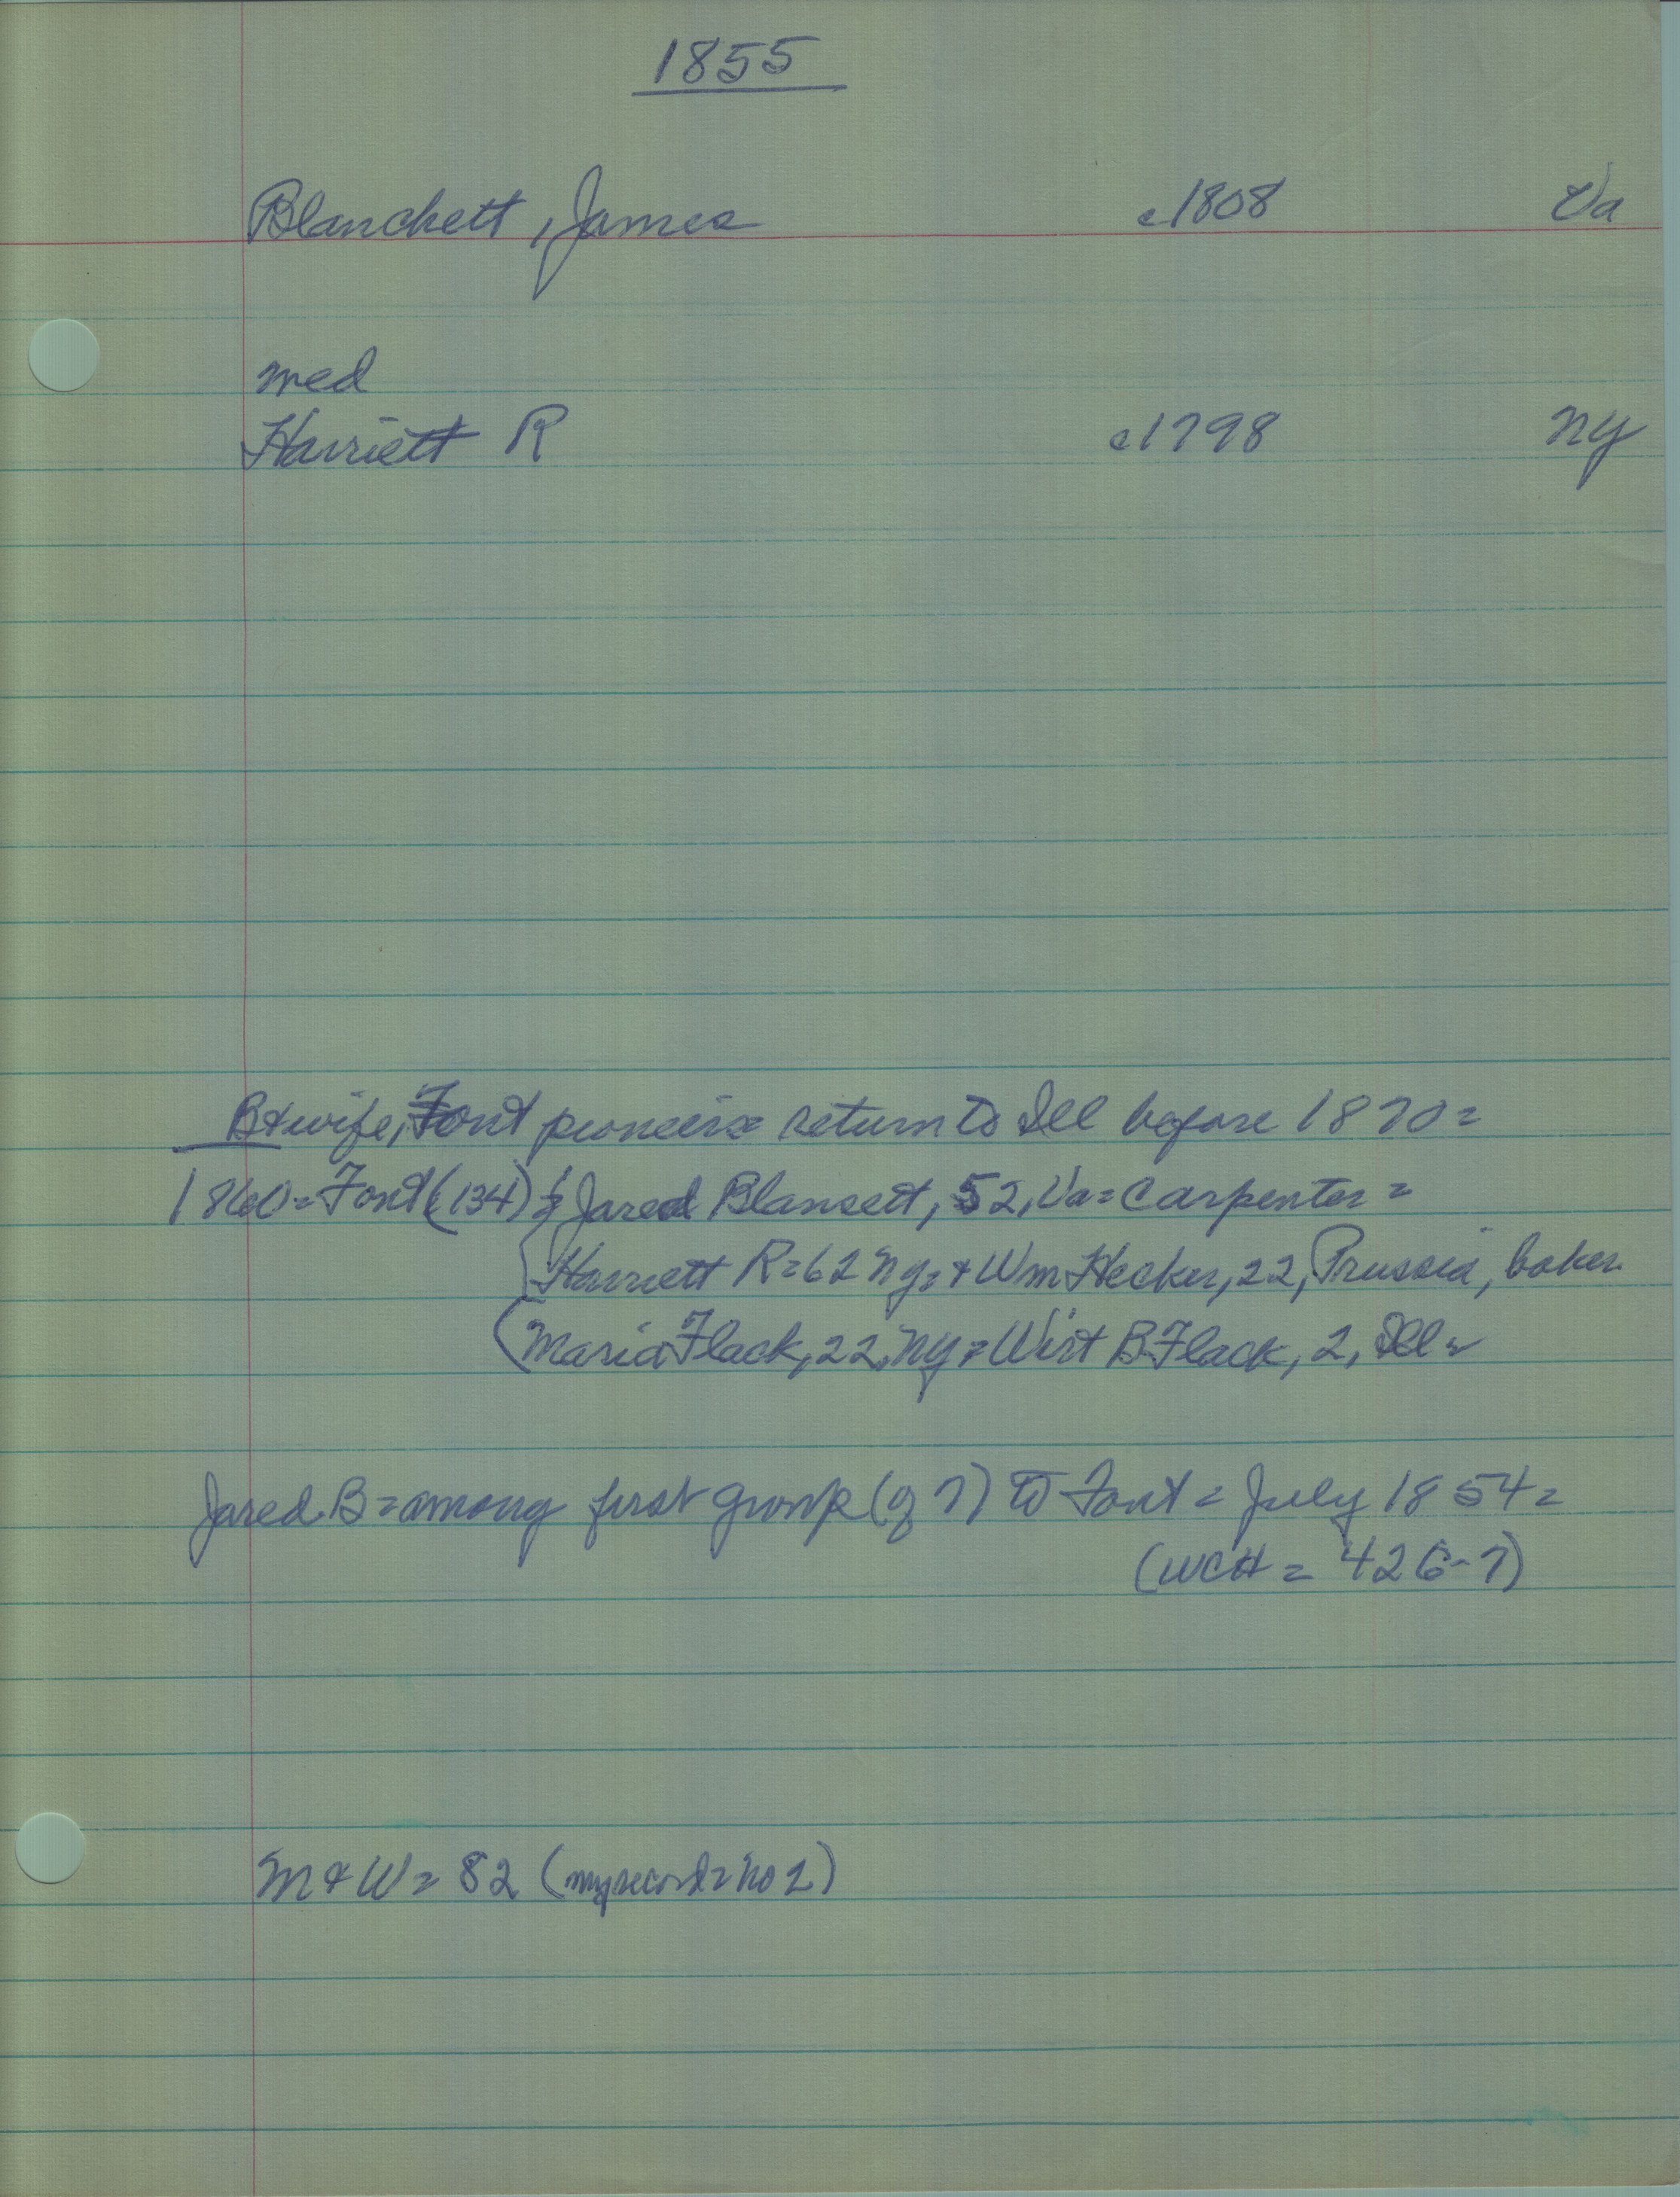 1855
Blanchett, James c1808 Va
med
Harriett R c1798 NY
B & wife, Font pioneers return to Ill before 1870=
1860=Font (134) { Jared Blansett, 52, Va=Carpenter=
Harriett R=62 NY= + Wm Hecker, 22, Prussia, baker
Maria Flack, 22, NY= Wirt B Flack, 2, Ill=
Jared B=among first group (of 7) to Font= July 1854=
(WCH = 426-7)
M & W= 82 (my record= no 1)